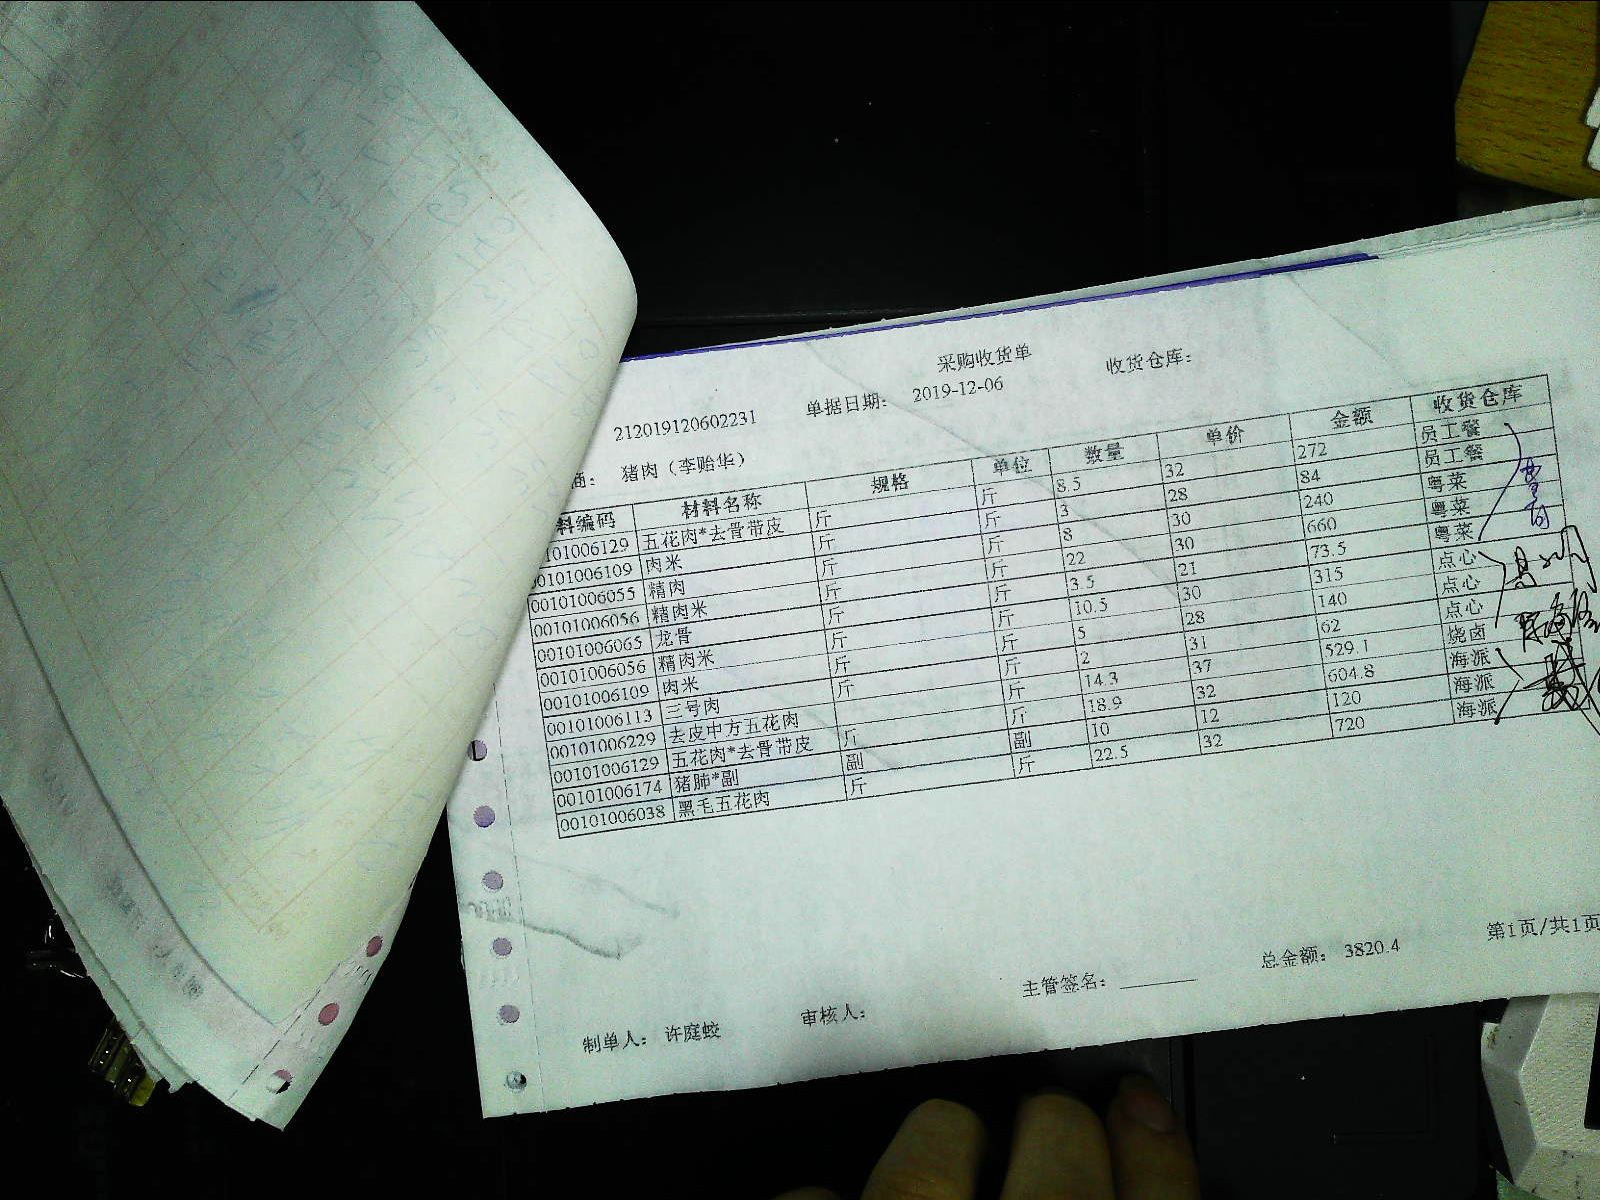 采购收货单
212019120602231 单据日期： 2019-12-06 收货仓库：
商： 猪肉（李贻华）
料编码 材料名称 规格 单位 数量 单价 金额 收货仓库
0101006129 五花肉*去骨带皮 斤 斤 8.5 32 272 员工餐
00101006109 肉米 斤 斤 3 28 84 员工餐
00101006055 精肉 斤 斤 8 30 240 粤菜
00101006056 精肉米 斤 斤 22 30 660 粤菜
00101006065 龙骨 斤 斤 3.5 21 73.5 粤菜
00101006056 精肉米 斤 斤 10.5 30 315 点心
00101006109 肉米 斤 斤 5 28 140 点心
00101006113 三号肉 斤 斤 2 31 62 点心
00101006229 去皮中方五花肉 斤 14.3 37 529.1 烧卤
00101006129 五花肉*去骨带皮 斤 斤 18.9 32 604.8 海派
00101006174 猪肺*副 副 副 10 12 120 海派
00101006038 黑毛五花肉 斤 斤 22.5 32 720 海派
总金额： 3820.4 第1页/共1页
制单人： 许庭蛟 审核人： 主管签名：